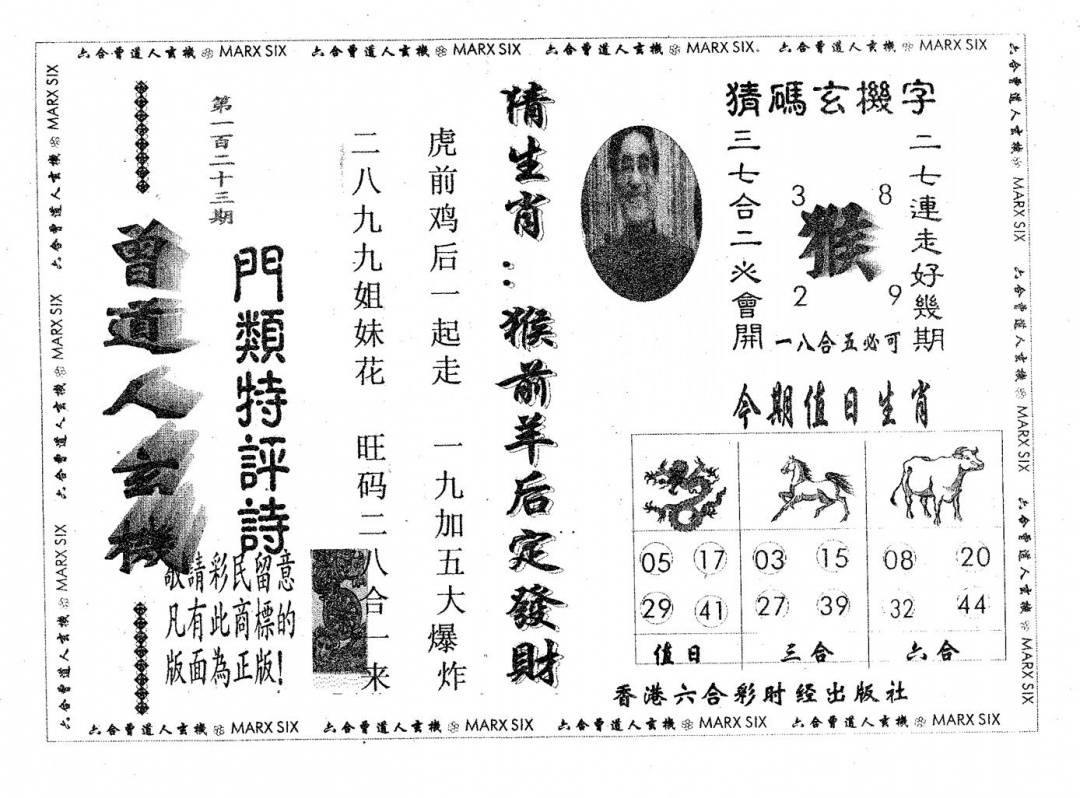 六合曾道人玄機 MARX SIX 六合曾道人玄機 MARX SIX 六合曾道人玄機 MARX SIX 六合曾道人玄機 MARX SIX
猜碼玄機字
二七連走好幾期
3 8
猴
2 9
一八合五必可
三七合二必會開
今期值日生肖
05 17 03 15 08 20
29 41 27 39 32 44
值日 三合 六合
香港六合彩財经出版社
猜生肖：猴前羊后定發財
虎前鸡后一起走 一九加五大爆炸
二八九九姐妹花 旺码二八合一来
門類特評詩
第一百二十三期
曾道人玄機
敬請彩民留意
凡有此商標的
版面為正版！
六合曾道人玄機 MARX SIX 六合曾道人玄機 MARX SIX 六合曾道人玄機 MARX SIX
六合曾道人玄機 MARX SIX 六合曾道人玄機 MARX SIX 六合曾道人玄機 MARX SIX
六合曾道人玄機 MARX SIX 六合曾道人玄機 MARX SIX 六合曾道人玄機 MARX SIX 六合曾道人玄機 MARX SIX